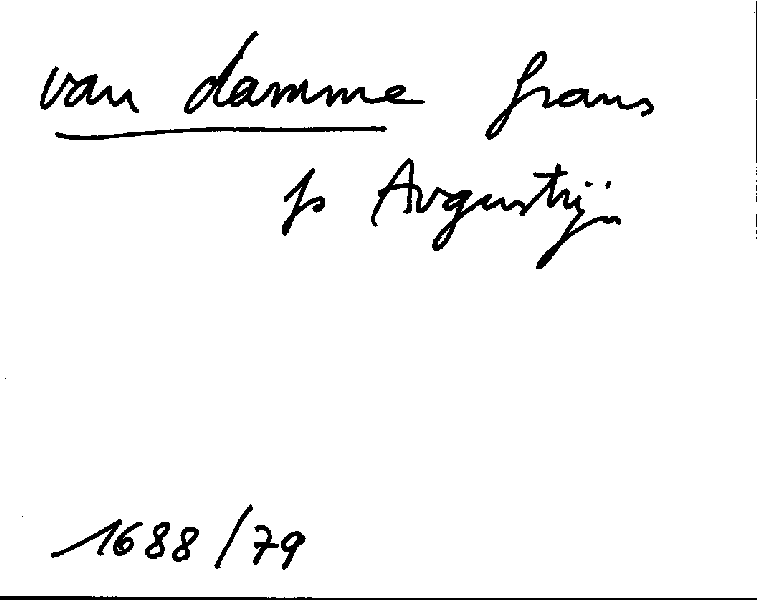 van damme frans
fs Augustijn
1688/79